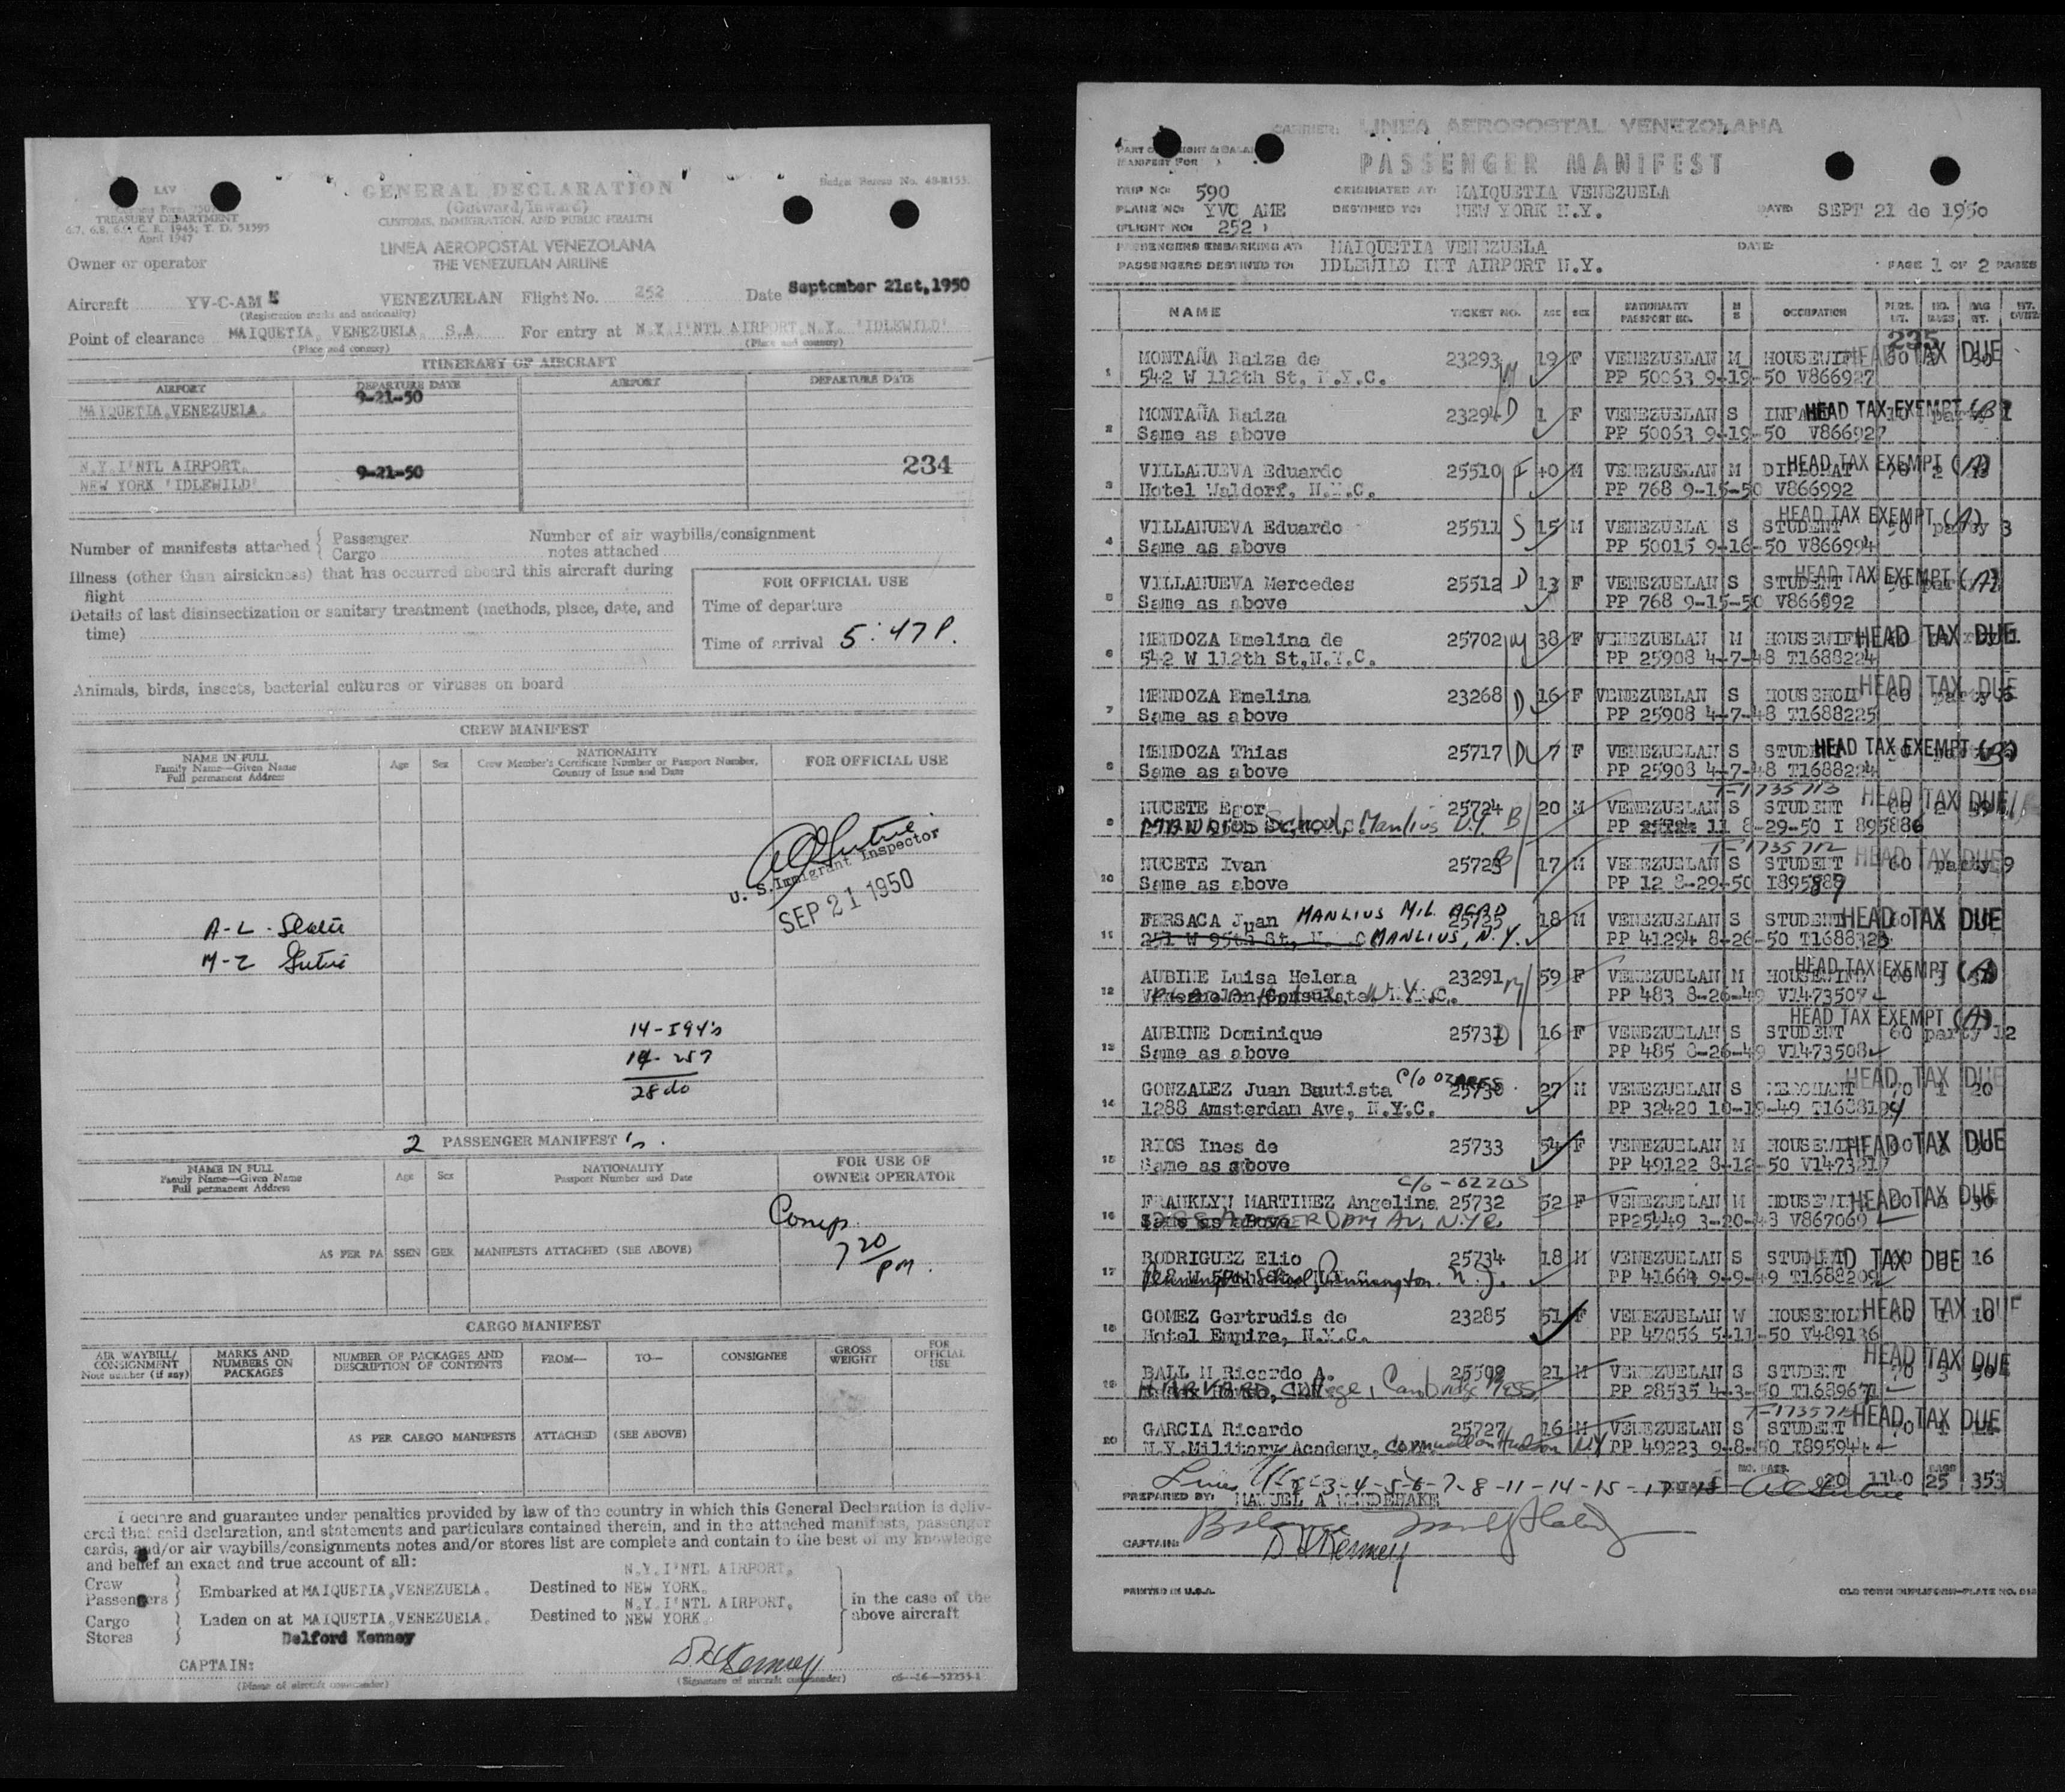 LAV
TREASURY DEPARTMENT
6.7, 6.8, 6.9, C. R. 1943; T. D. 51595
April 1947
GENERAL DECLARATION
(Outward/Inward)
CUSTOMS, IMMIGRATION, AND PUBLIC HEALTH
LINEA AEROPOSTAL VENEZOLANA
THE VENEZUELAN AIRLINE
Budget Bureau No. 48-R153.
Owner or operator
Aircraft YV-C-AM E VENEZUELAN Flight No. 252 Date September 21st, 1950
(Registration marks and nationality)
Point of clearance MAIQUETIA, VENEZUELA, S.A For entry at N.Y. I'NTL AIRPORT N.Y. 'IDLEWILD'
(Place and country) (Place and country)
ITINERARY OF AIRCRAFT
AIRPORT DEPARTURE DATE AIRPORT DEPARTURE DATE
MAIQUETIA, VENEZUELA. 9-21-50
N.Y. I'NTL AIRPORT. 9-21-50 234
NEW YORK 'IDLEWILD'
Number of manifests attached { Passenger Number of air waybills/consignment
Cargo notes attached
Illness (other than airsickness) that has occurred aboard this aircraft during
flight
Details of last disinsectization or sanitary treatment (methods, place, date, and
time)
FOR OFFICIAL USE
Time of departure
Time of arrival 5:47 P.
Animals, birds, insects, bacterial cultures or viruses on board
CREW MANIFEST
NAME IN FULL
Family Name—Given Name
Full permanent Address
Age Sex
NATIONALITY
Crew Member's Certificate Number or Passport Number,
Country of Issue and Date
FOR OFFICIAL USE
U. S. Immigrant Inspector
SEP 21 1950
A-L.
M-Z
14-I94's
14-257
28 do
2 PASSENGER MANIFEST 's.
NAME IN FULL
Family Name—Given Name
Full permanent Address
Age Sex
NATIONALITY
Passport Number and Date
FOR USE OF
OWNER OPERATOR
Comp.
7 20 pm.
AS PER PASSENGER MANIFESTS ATTACHED (SEE ABOVE)
CARGO MANIFEST
AIR WAYBILL/
CONSIGNMENT
Note number (if any)
MARKS AND
NUMBERS ON
PACKAGES
NUMBER OF PACKAGES AND
DESCRIPTION OF CONTENTS
FROM— TO— CONSIGNEE
GROSS
WEIGHT
FOR
OFFICIAL
USE
AS PER CARGO MANIFESTS ATTACHED (SEE ABOVE)
I declare and guarantee under penalties provided by law of the country in which this General Declaration is deliv-
ered that said declaration, and statements and particulars contained therein, and in the attached manifests, passenger
cards, and/or air waybills/consignments notes and/or stores list are complete and contain to the best of my knowledge
and belief an exact and true account of all:
Crew
Passengers } Embarked at MAIQUETIA, VENEZUELA. Destined to N.Y. I'NTL AIRPORT, NEW YORK.
Cargo
Stores } Laden on at MAIQUETIA, VENEZUELA. Destined to N.Y. I'NTL AIRPORT. NEW YORK
in the case of the
above aircraft
Delford Kenney
CAPTAIN: D H Kenney
(Name of aircraft commander) (Signature of aircraft commander)
CARRIER: LINEA AEROPOSTAL VENEZOLANA
MANIFEST FOR
PASSENGER MANIFEST
TRIP NO: 590 ORIGINATED AT: MAIQUETIA VENEZUELA
PLANE NO: YVC AME DESTINED TO: NEW YORK N.Y. DATE: SEPT 21 de 1950
(FLIGHT NO: 252 )
PASSENGERS EMBARKING AT: MAIQUETIA VENEZUELA DATE:
PASSENGERS DESTINED TO: IDLEWILD INT AIRPORT N.Y. PAGE 1 OF 2 PAGES
NAME TICKET NO. AGE SEX NATIONALITY PASSPORT NO. OCCUPATION
235
1 MONTAÑA Raiza de 23293 M 19 F VENEZUELAN M HOUSEWIFE HEAD TAX DUE
542 W 112th St, N.Y.C. PP 50063 9-19-50 V866927
2 MONTAÑA Raiza 23294 D 1 F VENEZUELAN S HEAD TAX EXEMPT (B) 1
Same as above PP 50063 9-19-50 V866927
3 VILLANUEVA Eduardo 25510 F 40 M VENEZUELAN M DIPLOMAT HEAD TAX EXEMPT (A)
Hotel Waldorf, N.Y.C. PP 768 9-15-50 V866992
4 VILLANUEVA Eduardo 25511 S 15 M VENEZUELA S STUDENT HEAD TAX EXEMPT (A) party 3
Same as above PP 50015 9-16-50 V866994
5 VILLANUEVA Mercedes 25512 D 13 F VENEZUELAN S STUDENT HEAD TAX EXEMPT (A)
Same as above PP 768 9-15-50 V866992
6 MENDOZA Emelina de 25702 M 38 F VENEZUELAN M HOUSEWIFE HEAD TAX DUE
542 W 112th St, N.Y.C. PP 25908 4-7-48 T1688224
7 MENDOZA Emelina 23268 D 16 F VENEZUELAN S HOUSEHOLD HEAD TAX DUE
Same as above PP 25908 4-7-48 T1688225
8 MENDOZA Thias 25717 D 7 F VENEZUELAN S STUDENT HEAD TAX EXEMPT (B)
Same as above PP 25908 4-7-48 T1688224
T-1735713
9 NUCETE Egor 25724 20 M VENEZUELAN S STUDENT HEAD TAX DUE
School, Manlius N.Y. B PP 11 8-29-50 I 895886
T-1735712
10 NUCETE Ivan 25725 B 17 M VENEZUELAN S STUDENT HEAD TAX DUE 60 party 9
Same as above PP 12 8-29-50 I895889
11 FERSACA Juan MANLIUS MIL ACAD 25735 18 M VENEZUELAN S STUDENT HEAD TAX DUE
251 W 95th St, MANLIUS, N.Y. PP 41294 8-26-50 T1688323
12 AUBINE Luisa Helena 23291 M 59 F VENEZUELAN M HOUSEWIFE HEAD TAX EXEMPT (A)
N.Y.C. PP 483 8-26-49 V1473507
13 AUBINE Dominique 25731 D 16 F VENEZUELAN S STUDENT HEAD TAX EXEMPT (A) 60 party 12
Same as above PP 485 8-26-49 V1473508
14 GONZALEZ Juan Bautista c/o 25730 27 M VENEZUELAN S MERCHANT HEAD TAX DUE 70 1 20
1288 Amsterdam Ave, N.Y.C. PP 32420 10-19-49 T1688194
15 RIOS Ines de 25733 54 F VENEZUELAN M HOUSEWIFE HEAD TAX DUE
Same as above PP 49122 8-12-50 V1473217
16 FRANKLYN MARTINEZ Angelina 25732 52 F VENEZUELAN M HOUSEWIFE HEAD TAX DUE
AMSTERDAM AV. N.Y.C. PP25449 3-20-48 V867069
17 RODRIGUEZ Elio 25734 18 M VENEZUELAN S STUDENT HEAD TAX DUE 16
Pennington School, Pennington. N.J. PP 41664 9-9-49 T1688209
18 GOMEZ Gertrudis de 23285 51 F VENEZUELAN W HOUSEHOLD HEAD TAX DUE
Hotel Empire, N.Y.C. PP 47056 5-11-50 V489136
19 BALL H Ricardo A. 25509 21 M VENEZUELAN S STUDENT HEAD TAX DUE
HARVARD College, Cambridge Mass PP 28535 4-3-50 T168967
20 GARCIA Ricardo 25727 16 M VENEZUELAN S STUDENT HEAD TAX DUE
N.Y. Military Academy, Cornwall on Hudson N.Y PP 49223 9-8-50 I895944
Lines 1-2-3-4-5-6-7-8-11-14-15-17-18
20 1140 25 353
PREPARED BY: MANUEL A
Balance
CAPTAIN: D H Kenney
PRINTED IN U.S.A.